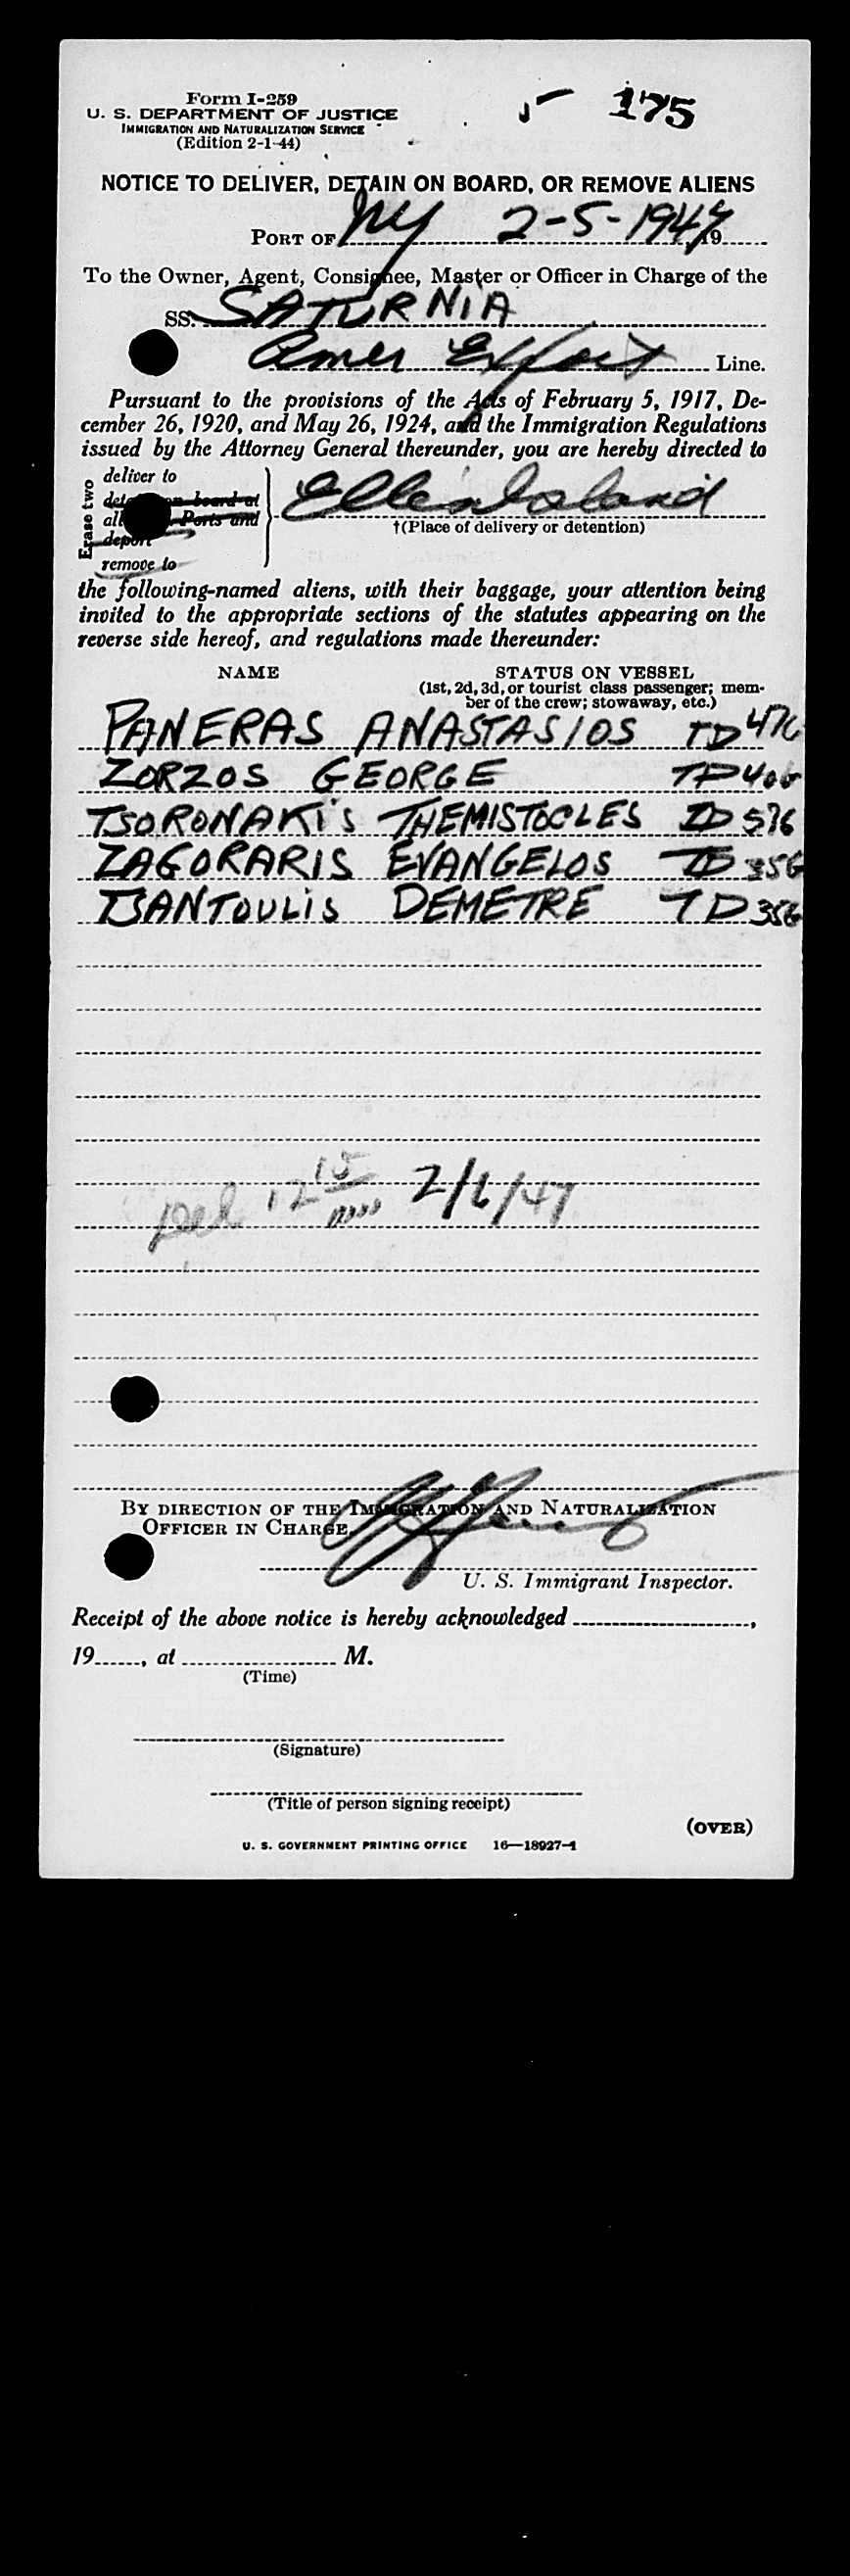 Form I-259
175
U. S. DEPARTMENT OF JUSTICE
IMMIGRATION AND NATURALIZATION SERVICE
(Edition 2-1-44)
NOTICE TO DELIVER, DETAIN ON BOARD, OR REMOVE ALIENS
PORT OF NY 2-5-1947, 19
To the Owner, Agent, Consignee, Master or Officer in Charge of the
SS. SATURNIA
Amer Export Line.
Pursuant to the provisions of the Acts of February 5, 1917, De-
cember 26, 1920, and May 26, 1924, and the Immigration Regulations
issued by the Attorney General thereunder, you are hereby directed to
Erase two
deliver to
on board at
Ports and
deport
remove to
Ellis Island
†(Place of delivery or detention)
the following-named aliens, with their baggage, your attention being
invited to the appropriate sections of the statutes appearing on the
reverse side hereof, and regulations made thereunder:
NAME STATUS ON VESSEL
(1st, 2d, 3d, or tourist class passenger; mem-
ber of the crew; stowaway, etc.)
PANERAS ANASTASIOS TD
ZORZOS GEORGE TD
TSORONAKIS THEMISTOCLES TD 576
ZAGORARIS EVANGELOS TD
TSANTOULIS DEMETRE TD
Del 12 15 2/6/47
BY DIRECTION OF THE IMMIGRATION AND NATURALIZATION
OFFICER IN CHARGE.
U. S. Immigrant Inspector.
Receipt of the above notice is hereby acknowledged ,
19 , at M.
(Time)
(Signature)
(Title of person signing receipt)
(OVER)
U. S. GOVERNMENT PRINTING OFFICE 16—18927-1